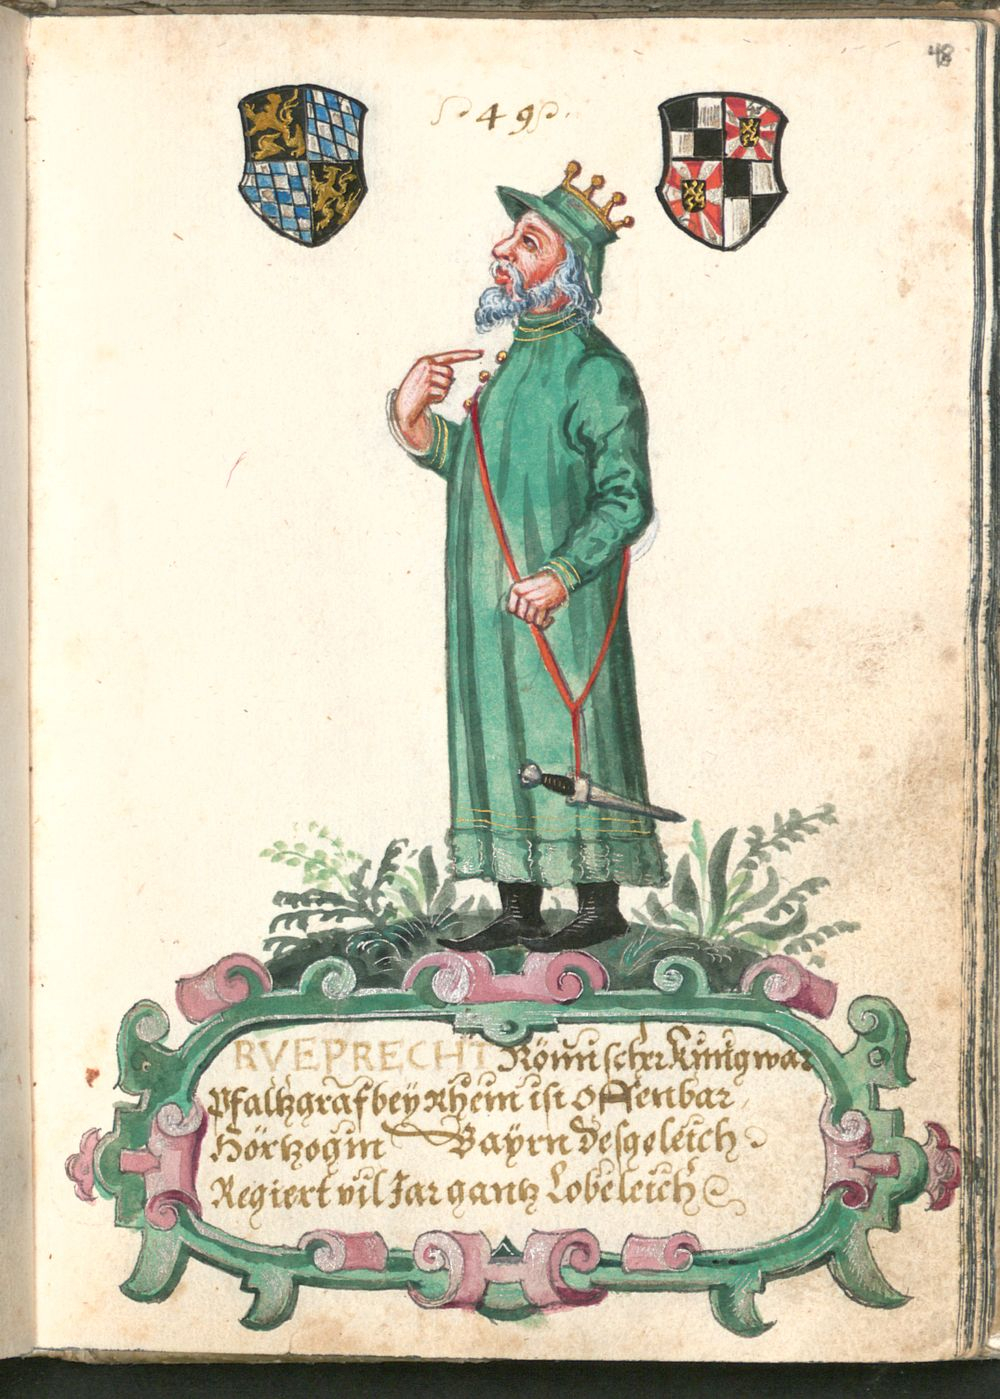 48
49
RVEPRECHT Römischer Künig war
Pfaltzgraf bey Rhein ist offenbar,
Hörtzog in Bayrn desgeleich
Regiert vil Jar gantz Lobeleich